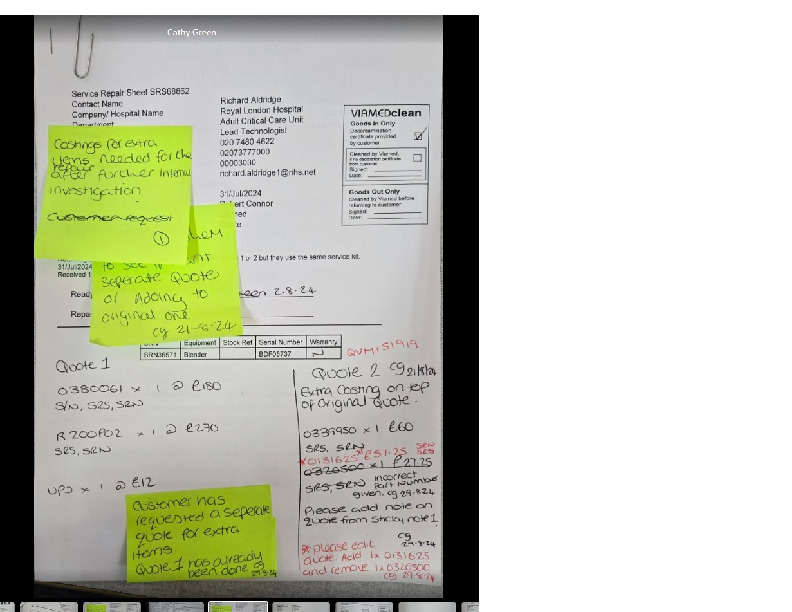 Cathy Green
Service Repair Sheet SRS68652
Contact Name
Company/ Hospital Name
Department
Richard Aldridge
Royal London Hospital
Adult Critical Care Unit
Lead Technologist
020 7480 4622
02073777000
00003030
richard.aldridge1@nhs.net
31/Jul/2024
VIAMEDclean
Goods In Only
Decontamination
certificate provided
by customer
Cleaned by Viamed,
if no
certificate
from customer
Signed:
Date:
Goods Out Only
Cleaned by Viamed before
returning to customer
Signed:
Date:
Costings for extra
items needed for the
repair
after further internal
investigation
Customer request
1
to see if
seperate Quote
or Adding to
original one
cg 21-8-24
1 or 2 but they use the same service kit.
31/Jul/2024
Received 1
Read
2-8-24
Repa
Equipment Stock Ref Serial Number Warranty
SRN36571 Blender BDF05737 N
QUM151919
Quote 1
0380061 x 1 @ £180
S/N, SRS, SRN
R200P02 x 1 @ £270
SRS, SRN
UPS x 1 @ £12
Customer has
requested a seperate
quote for extra
items
Quote 1 has already
been done cg
29.8.24
Quote 2 cg 21/8/24
Extra costing on top
of original Quote.
0339950 x 1 £60
SRS, SRN
*0131625 £51.25 SRN
SRS
0320500 x 1 £27.25
SRS, SRN Incorrect
part number
given. cg 29.8.24
Please add note on
quote from sticky note 1.
cg
29.8.24
* please edit
quote Add 1x 0131625
and remove 1x0320500
cg 29.8.24